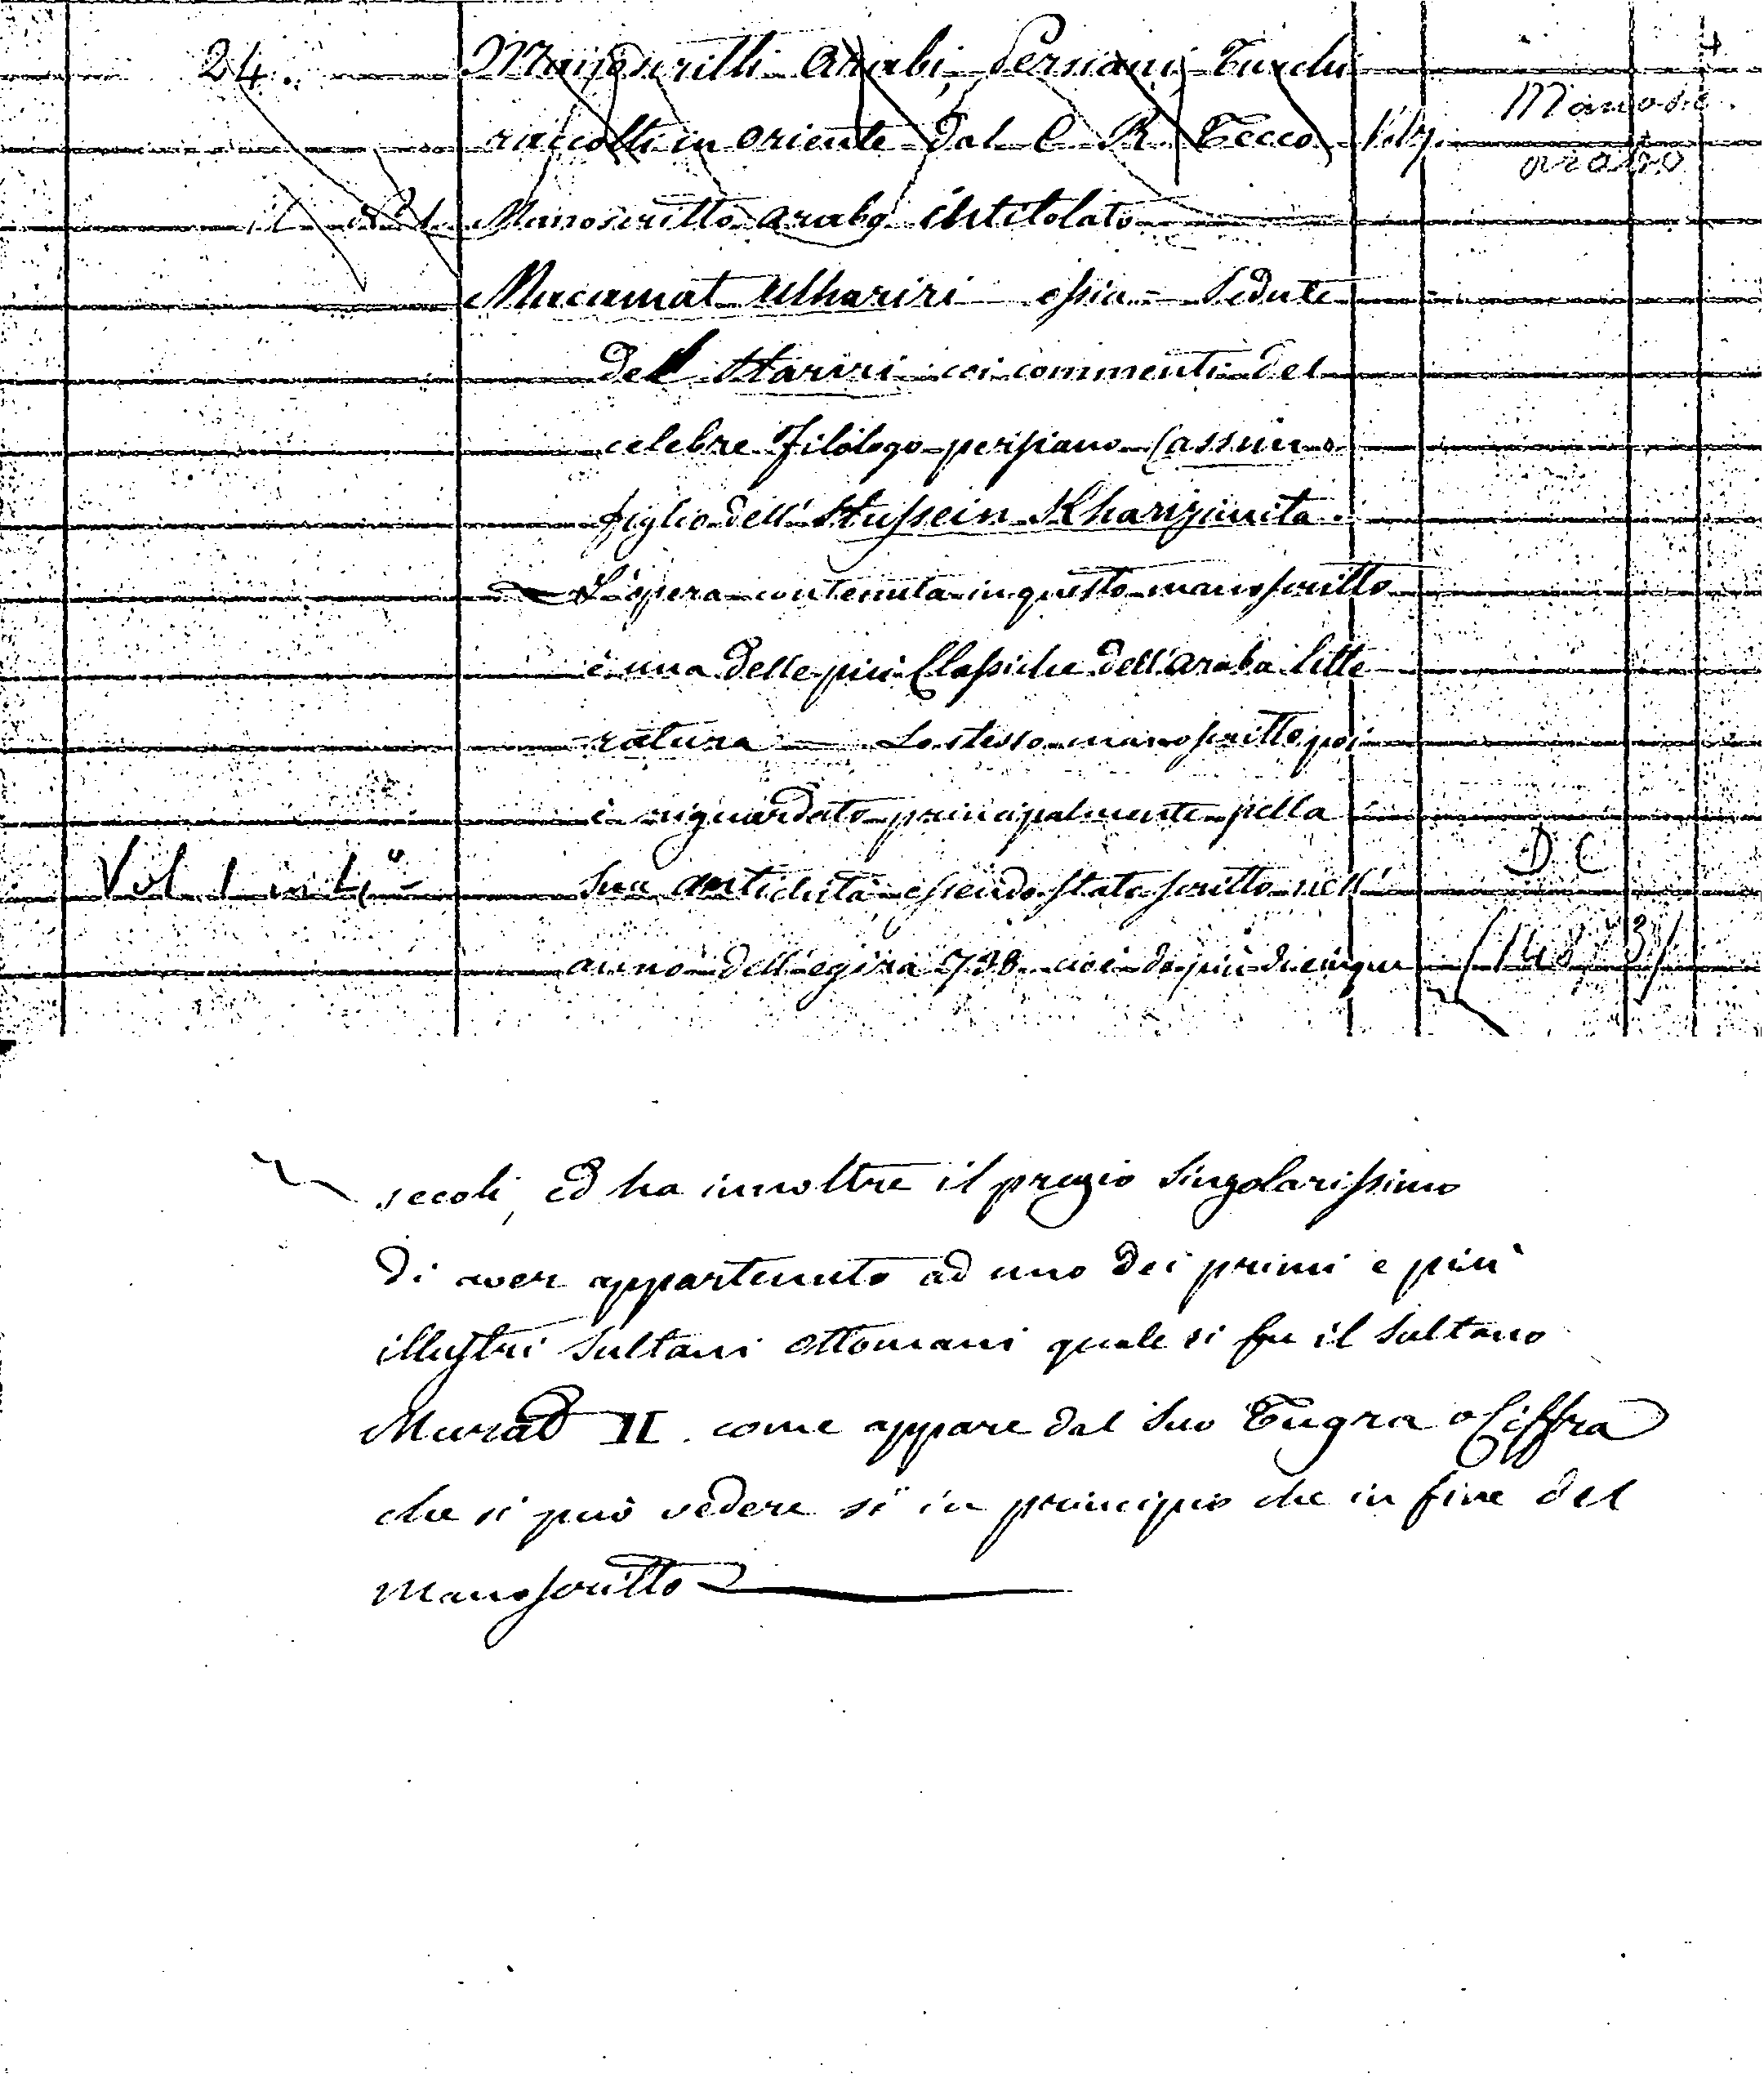 24. Manoscritti Arabi, Persiani, Turchi
raccolti in oriente dal C. R. Tecco
Manosc.
arabo
Manoscritto arabo intitolato
Macamat Ulhariri ossia = Sedute
del Hariri coi commenti del
celebre filologo persiano Cassimo
figlio dell'Hussein Kharizmita.
L'opera contenuta in questo manoscritto
è una delle più Classiche dell'araba litte
ratura — Lo stesso manoscritto poi
è riguardato principalmente pella
Vol. 1 in 4º = sua antichità essendo stato scritto nell' D C
anno dell'egira 738 cioè da più di cinque (148 73)
secoli, ed ha innoltre il pregio singolarissimo
di aver appartenuto ad uno dei primi e più
illustri Sultani ottomani quale si fu il Sultano
Murad II. come appare dal suo Tugra o Ciffra
che si può vedere sì in principio che in fine del
manoscritto